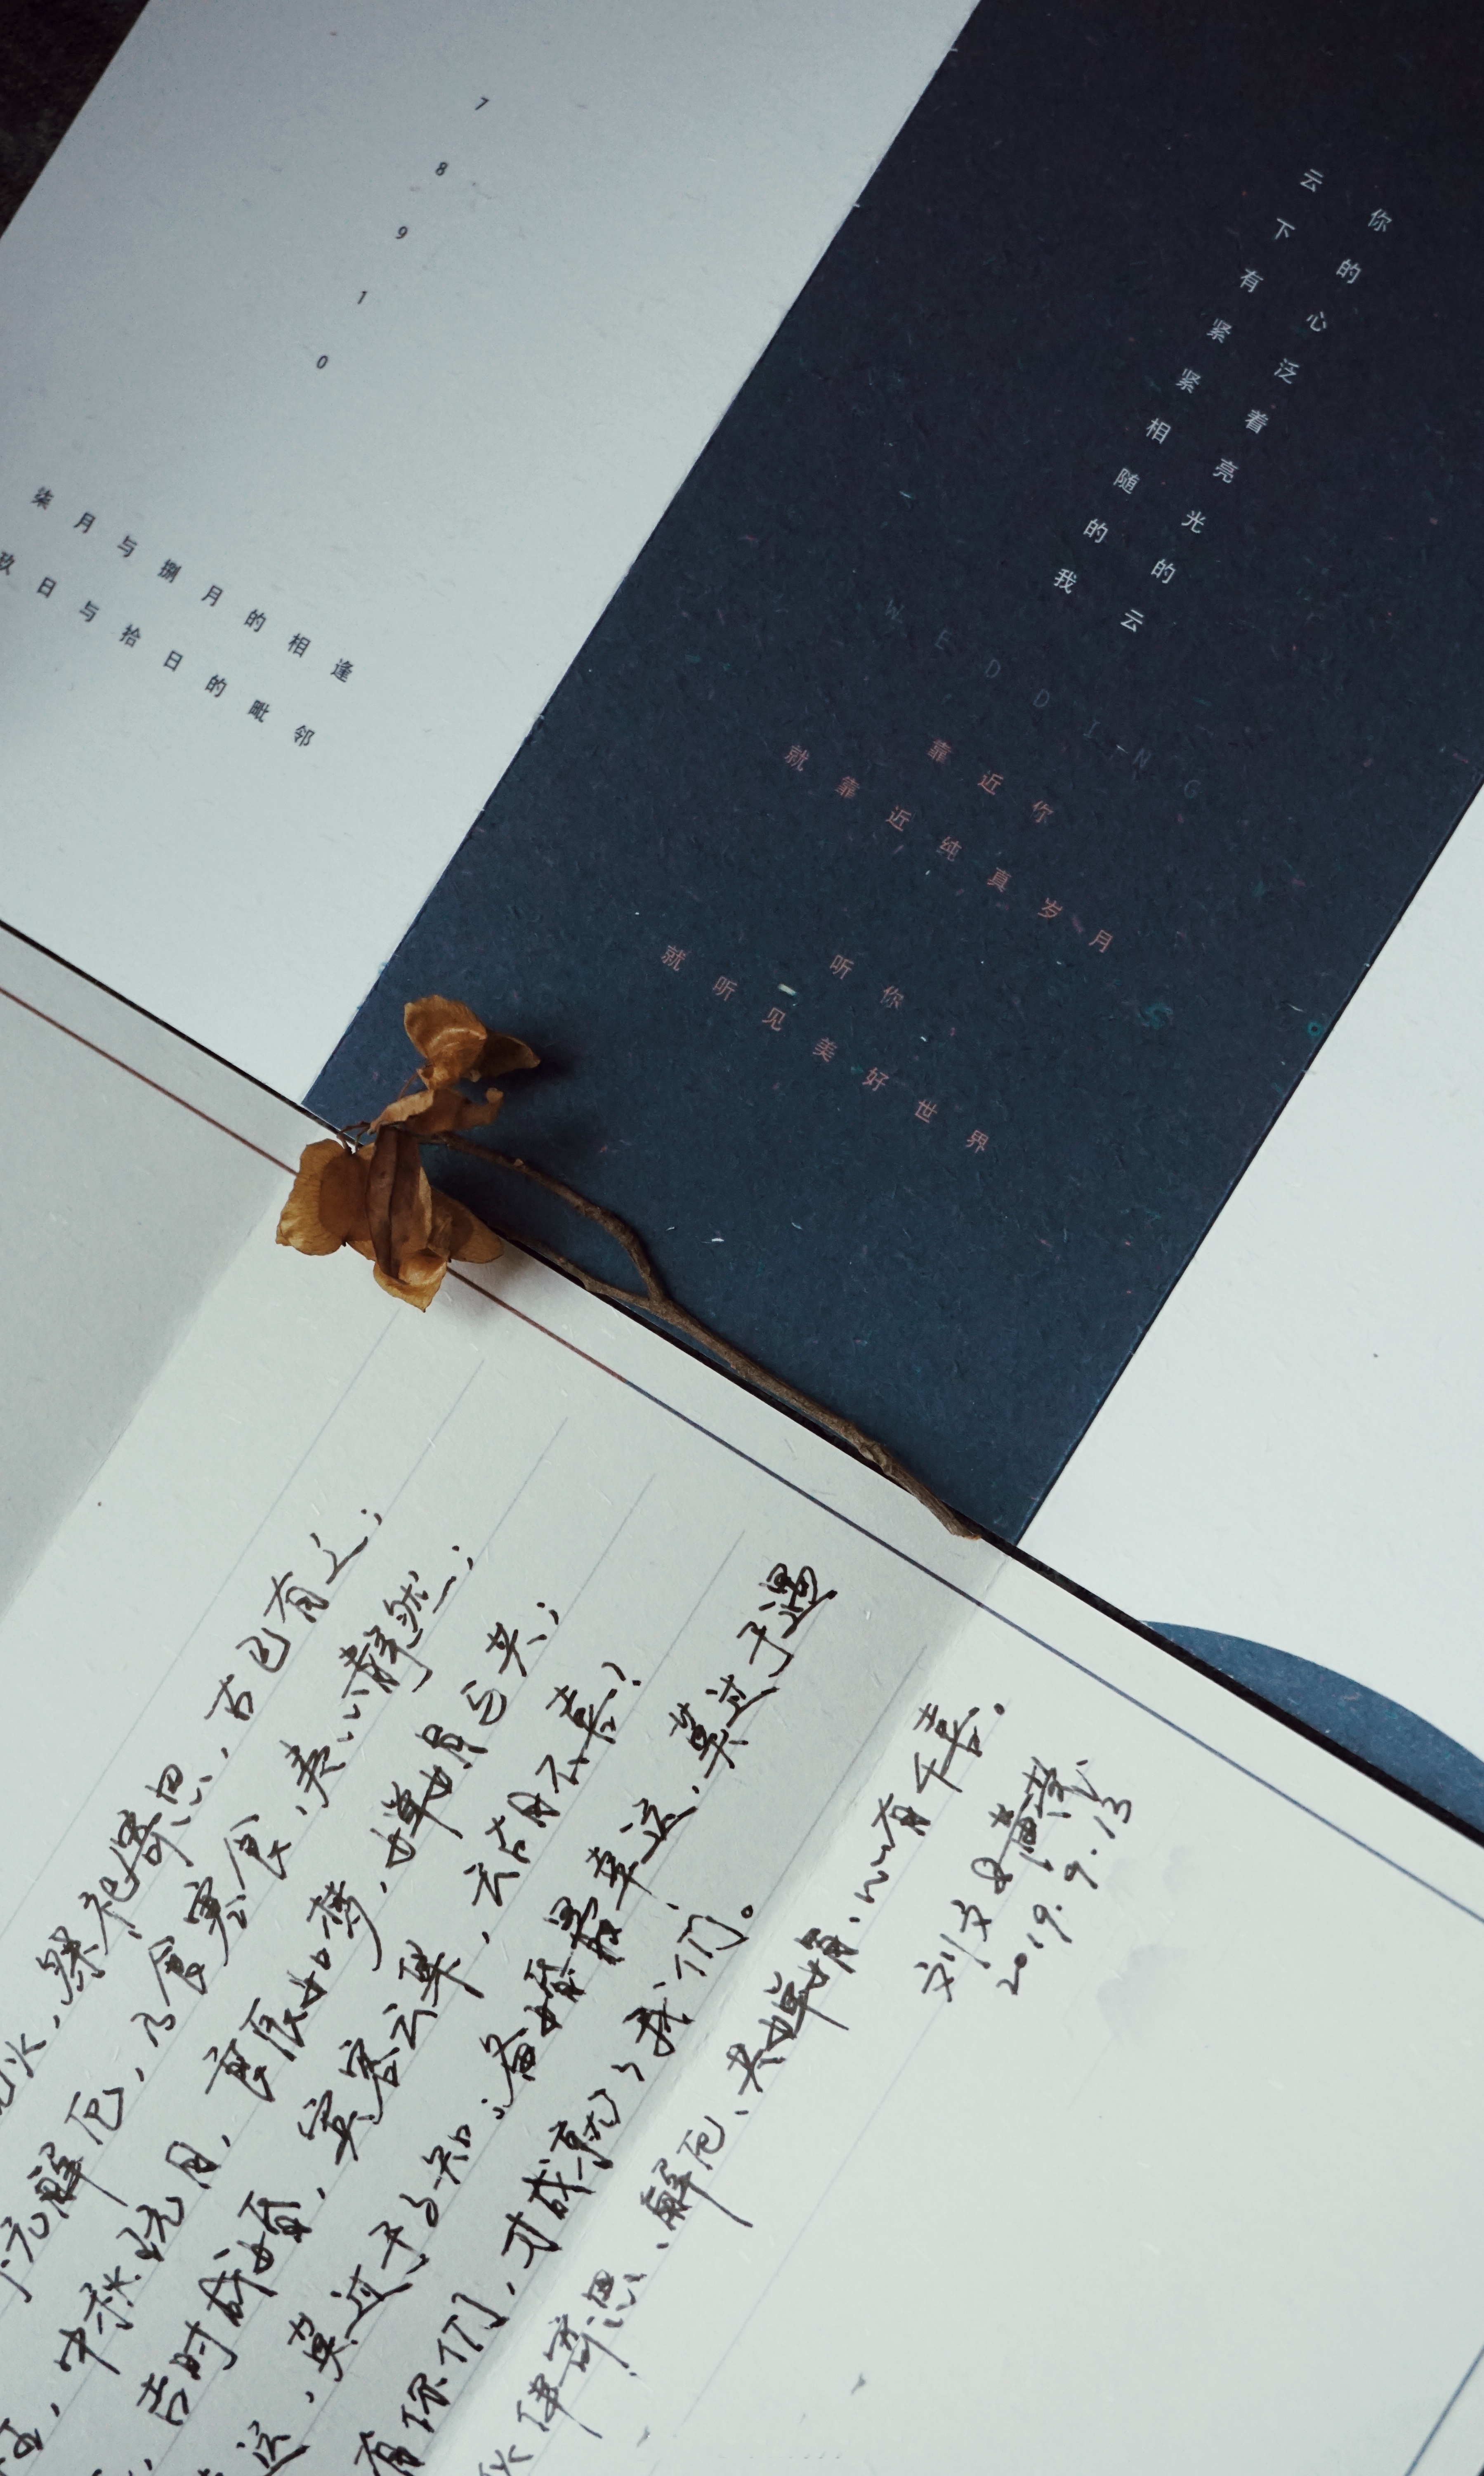 7
8
9
1
0
柒月与捌月的相逢
玖日与拾日的毗邻
你的心泛着亮光的云
云下有紧紧相随的我
WEDDING
靠近你
就靠近纯真岁月
听你
就听见美好世界
祭祀寄思，古已有之；
元解厄，乃食寒食，表心静然；
中秋玩月，良辰如梦，婵娟与共；
吉时成婚，宾客云集，云胡不喜？
莫过于相知；备婚最幸运，莫过于遇
有你们，才成就了我们。
伴寄思、解厄、共婵娟、心有千喜。
2019.9.13